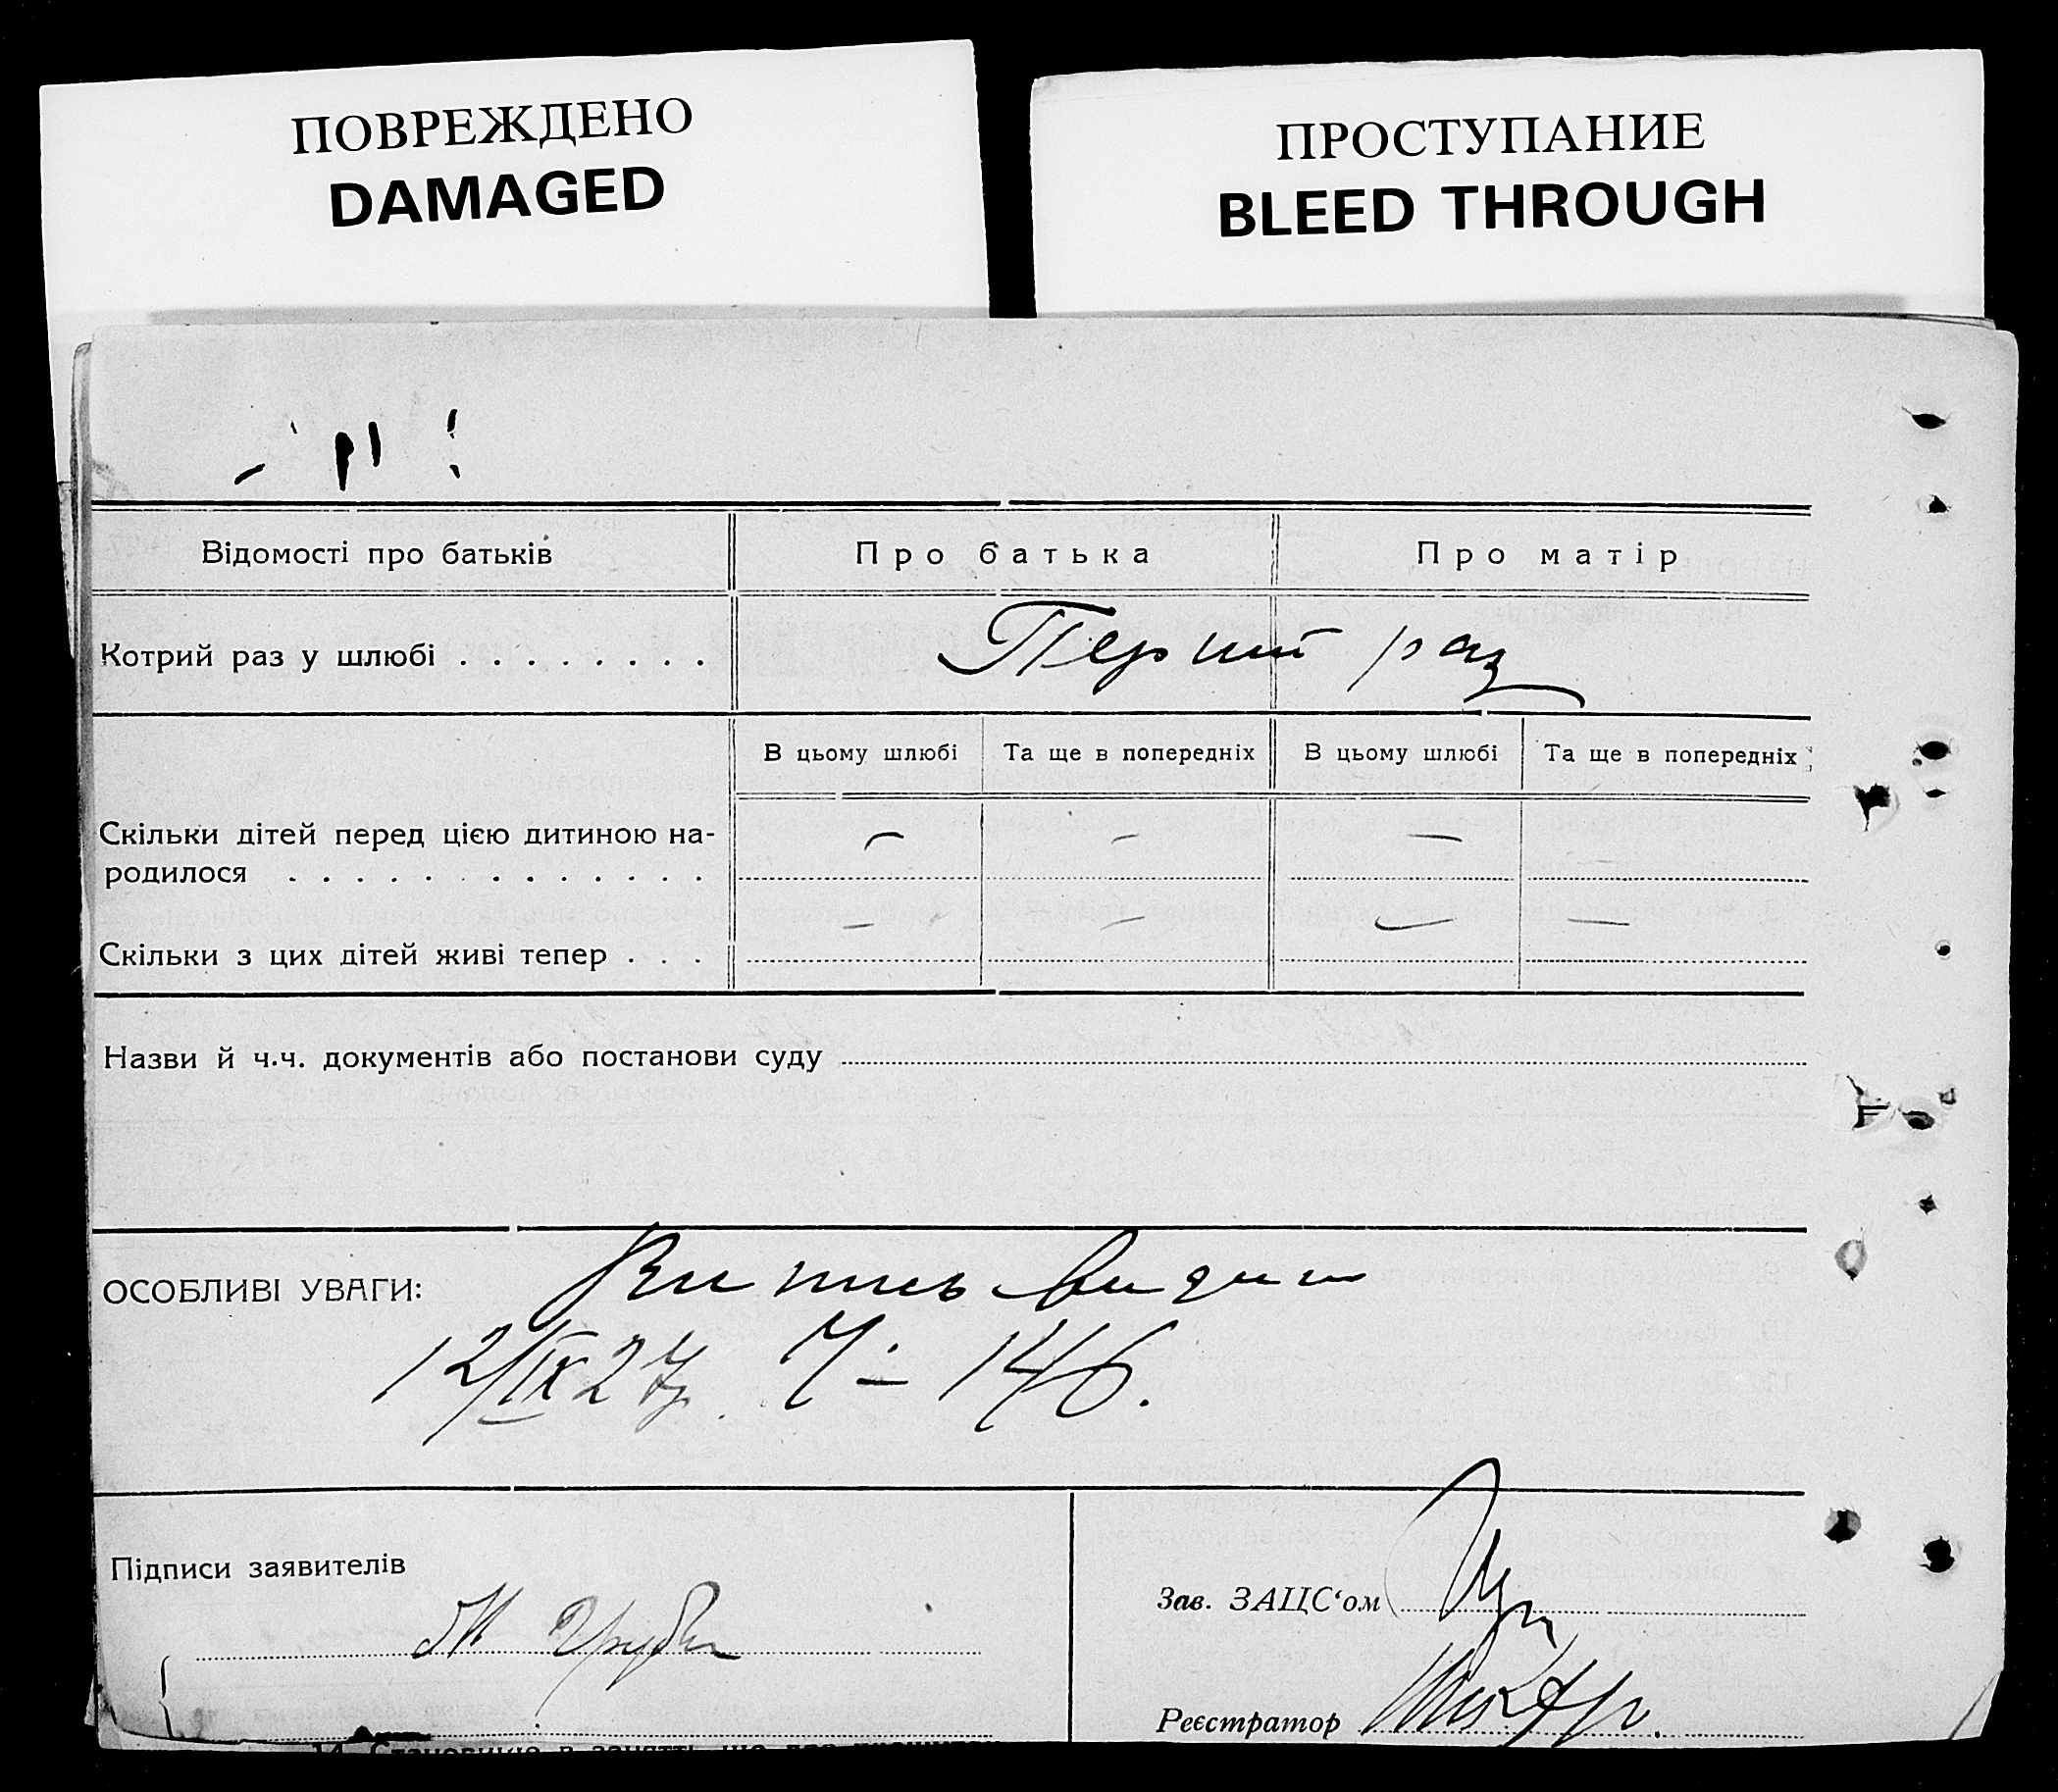 ПОВРЕЖДЕНО
DAMAGED
ПРОСТУПАНИЕ
BLEED THROUGH
Відомості про батьків
Про батька
Про матір
Котрий раз у шлюбі
Перший раз
В цьому шлюбі
Та ще в попередніх
В цьому шлюбі
Та ще в попередніх
Скільки дітей перед цією дитиною на-
родилося
— — —
Скільки з цих дітей живі тепер
— — — —
Назви й ч.ч. документів або постанови суду
ОСОБЛИВІ УВАГИ:
Випись
12/IX 27 146.
Підписи заявителів
Зав. ЗАЦС‘ом
Реєстратор